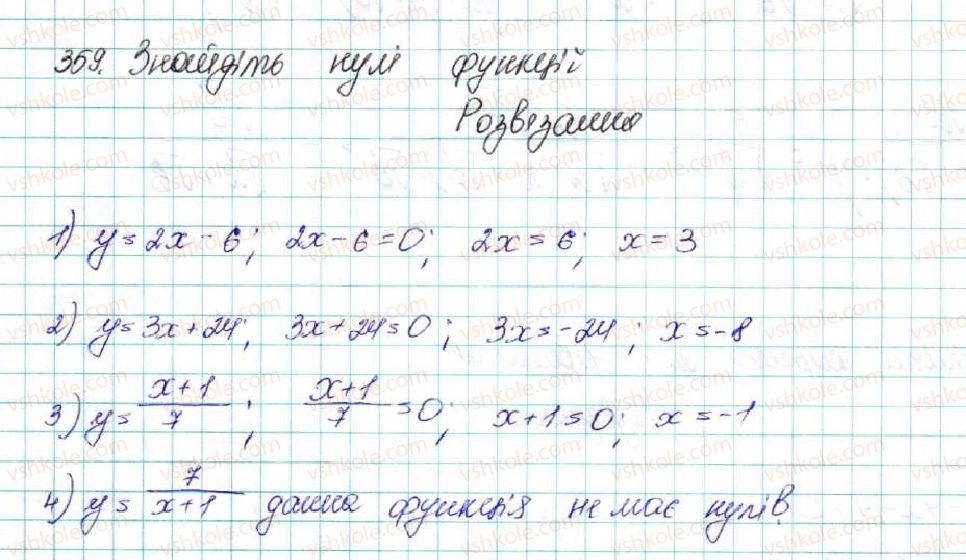 359. Знайдіть нулі функцій
Розв'язання
1) y = 2x - 6; 2x - 6 = 0; 2x = 6; x = 3
2) y = 3x + 24; 3x + 24 = 0; 3x = -24; x = -8
3) y = \frac{x+1}{7}; \frac{x+1}{7} = 0; x + 1 = 0; x = -1
4) y = \frac{7}{x+1} данна функція не має нулів.